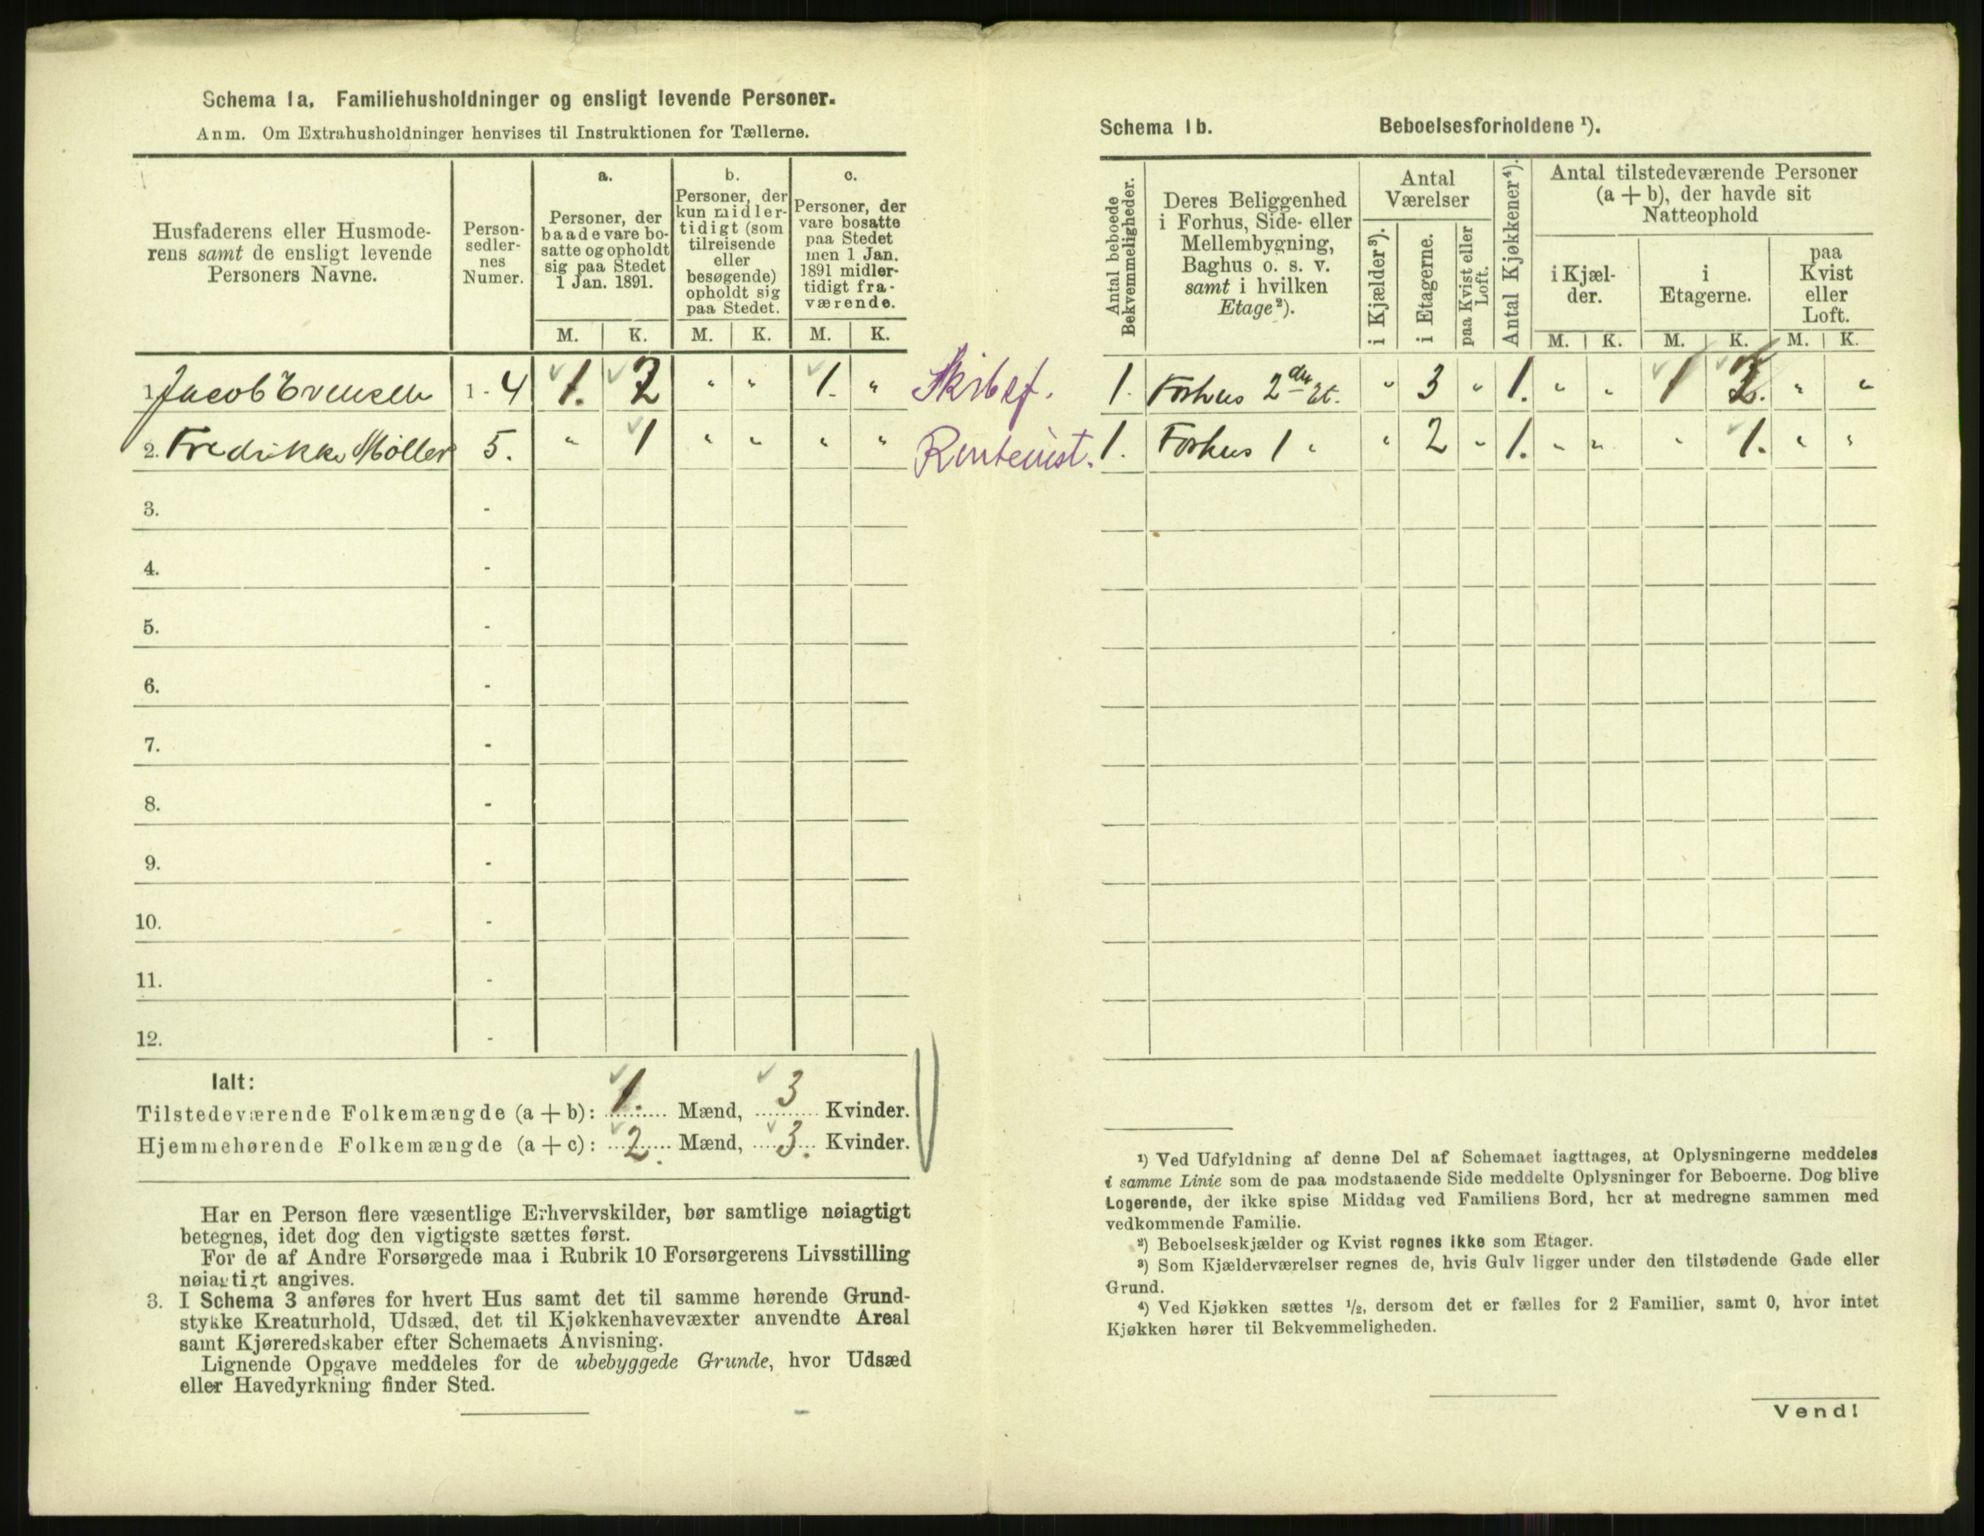 Schema 1a. Familiehusholdninger og ensligt levende Personer.
Anm. Om Extrahusholdninger henvises til Instruktionen for Tællerne.
Husfaderens eller Husmode-
rens samt de ensligt levende
Personers Navne.
Person-
sedler-
nes
Numer.
a.
Personer, der
baade vare bo-
satte og opholdt
sig paa Stedet
1 Jan. 1891.
b.
Personer, der
kun midler-
tidigt (som
tilreisende
eller
besøgende)
opholdt sig
paa Stedet.
c.
Personer, der
vare bosatte
paa Stedet
men 1 Jan.
1891 midler-
tidigt fra-
værende.
M. K. M. K. M. K.
1. Jacob Evensen 1 - 4 1. 2 " " 1. " Skibsf.
2. Fredrikke Møller 5. " 1 " " " " Rentenist.
3. -
4. -
5. -
6. -
7. -
8. -
9. -
10. -
11. -
12. -
Ialt:
Tilstedeværende Folkemængde (a + b): 1. Mænd, 3 Kvinder.
Hjemmehørende Folkemængde (a + c): 2. Mænd, 3. Kvinder.
Har en Person flere væsentlige Erhvervskilder, bør samtlige nøiagtigt
betegnes, idet dog den vigtigste sættes først.
For de af Andre Forsørgede maa i Rubrik 10 Forsørgerens Livsstilling
nøiagtigt angives.
3. I Schema 3 anføres for hvert Hus samt det til samme hørende Grund-
stykke Kreaturhold, Udsæd, det til Kjøkkenhavevæxter anvendte Areal
samt Kjøreredskaber efter Schemaets Anvisning.
Lignende Opgave meddeles for de ubebyggede Grunde, hvor Udsæd
eller Havedyrkning finder Sted.
Schema 1b. Beboelsesforholdene ¹).
Antal beboede
Bekvemmeligheder.
Deres Beliggenhed
i Forhus, Side- eller
Mellembygning,
Baghus o. s. v.
samt i hvilken
Etage²).
Antal
Værelser
i Kjælder³).
i Etagerne.
paa Kvist eller
Loft.
Antal Kjøkkener⁴).
Antal tilstedeværende Personer
(a + b), der havde sit
Natteophold
i Kjæl-
der.
i
Etagerne.
paa
Kvist
eller
Loft.
M. K. M. K. M. K.
1. Forhus 2den Et. " 3 " 1. " " 1 2. " "
1. Forhus 1 " " 2 " 1. " " " 1. " "
¹) Ved Udfyldning af denne Del af Schemaet iagttages, at Oplysningerne meddeles
i samme Linie som de paa modstaaende Side meddelte Oplysninger for Beboerne. Dog blive
Logerende, der ikke spise Middag ved Familiens Bord, her at medregne sammen med
vedkommende Familie.
²) Beboelseskjælder og Kvist regnes ikke som Etager.
³) Som Kjælderværelser regnes de, hvis Gulv ligger under den tilstødende Gade eller
Grund.
⁴) Ved Kjøkken sættes ½, dersom det er fælles for 2 Familier, samt 0, hvor intet
Kjøkken hører til Bekvemmeligheden.
Vend!